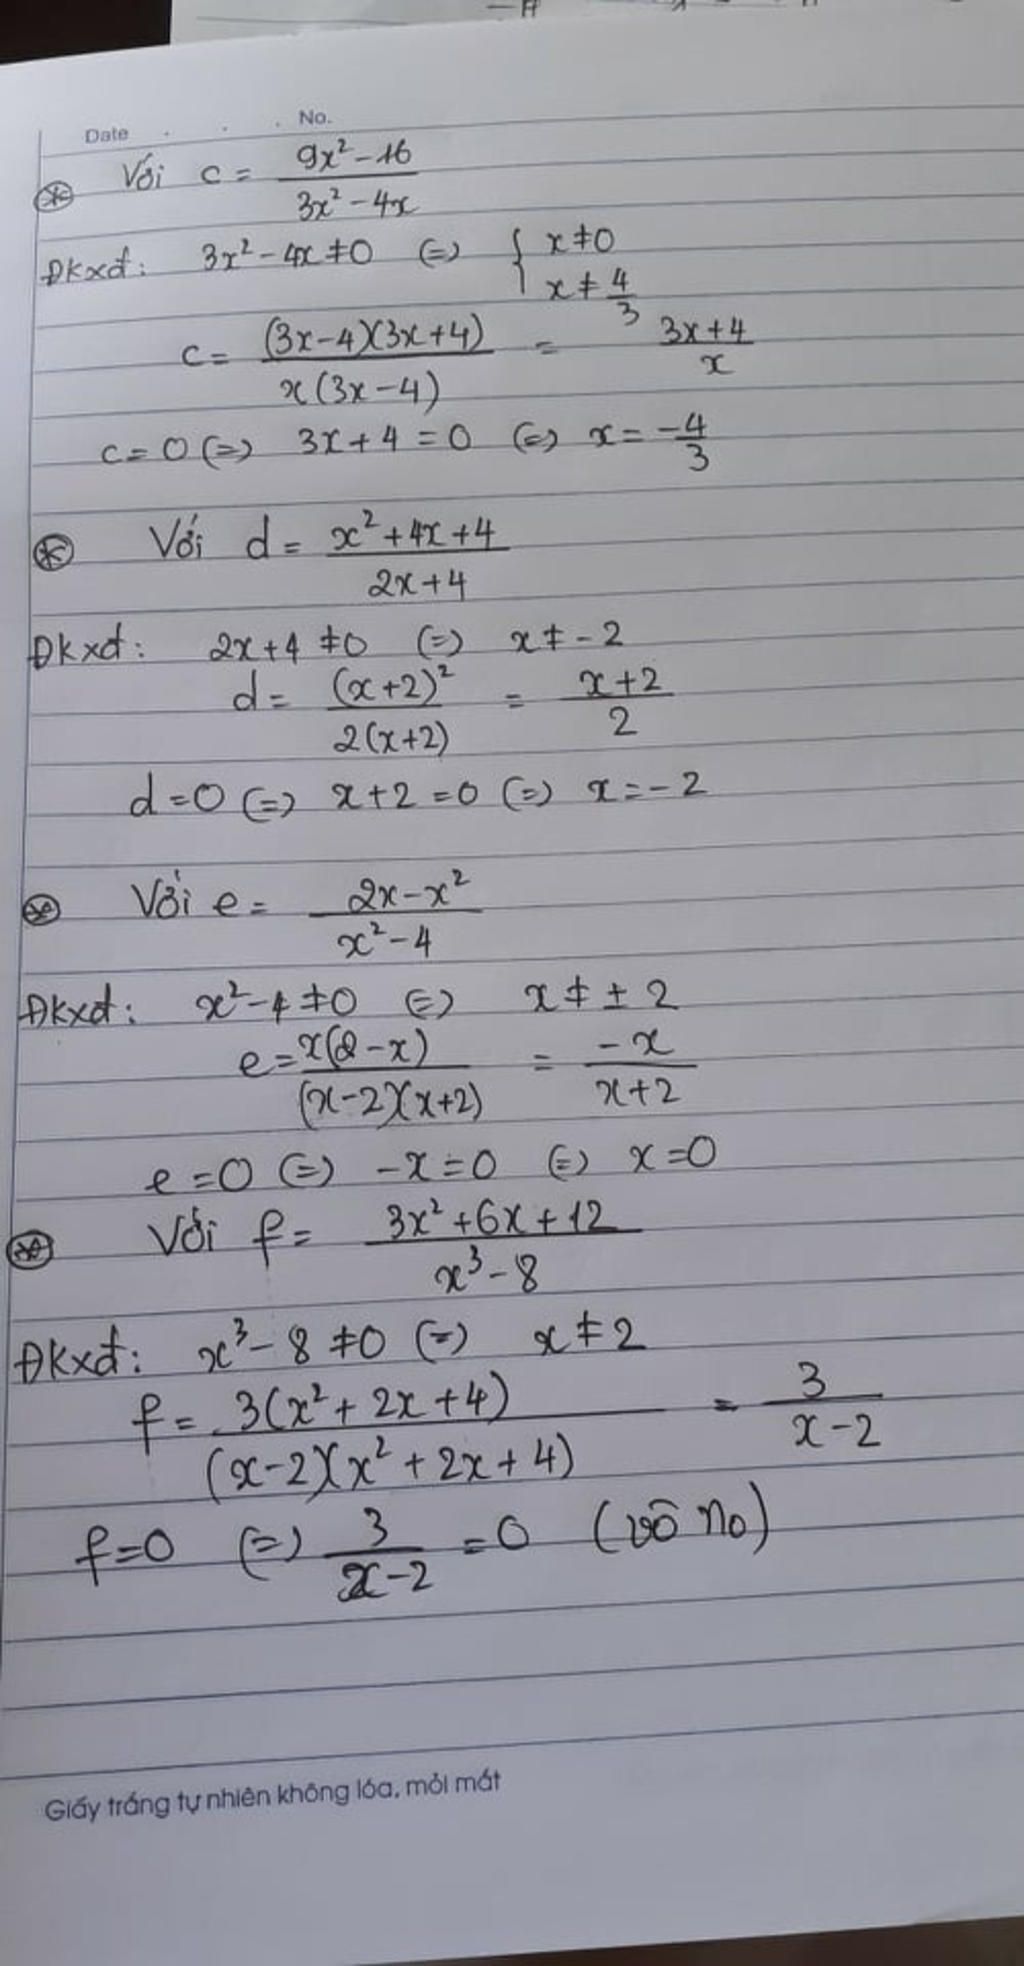 Date . . . No.
⊛ Với c = (9x² - 16)/(3x² - 4x)
Đkxđ: 3x² - 4x ≠ 0 (=) { x ≠ 0
x ≠ 4/3
c = ((3x-4)(3x+4))/(x(3x-4)) = (3x+4)/x
c = 0 (=) 3x + 4 = 0 (=) x = -4/3
⊛ Với d = (x² + 4x + 4)/(2x + 4)
Đkxđ: 2x + 4 ≠ 0 (=) x ≠ -2
d = (x+2)²/(2(x+2)) = (x+2)/2
d = 0 (=) x + 2 = 0 (=) x = -2
⊛ Với e = (2x - x²)/(x² - 4)
Đkxđ: x² - 4 ≠ 0 (=) x ≠ ± 2
e = (x(2-x))/((x-2)(x+2)) = (-x)/(x+2)
e = 0 (=) -x = 0 (=) x = 0
⊛ Với f = (3x² + 6x + 12)/(x³ - 8)
Đkxđ: x³ - 8 ≠ 0 (=) x ≠ 2
f = (3(x² + 2x + 4))/((x-2)(x² + 2x + 4)) = 3/(x-2)
f = 0 (=) 3/(x-2) = 0 (vô no)
Giấy trắng tự nhiên không lóa, mỏi mắt